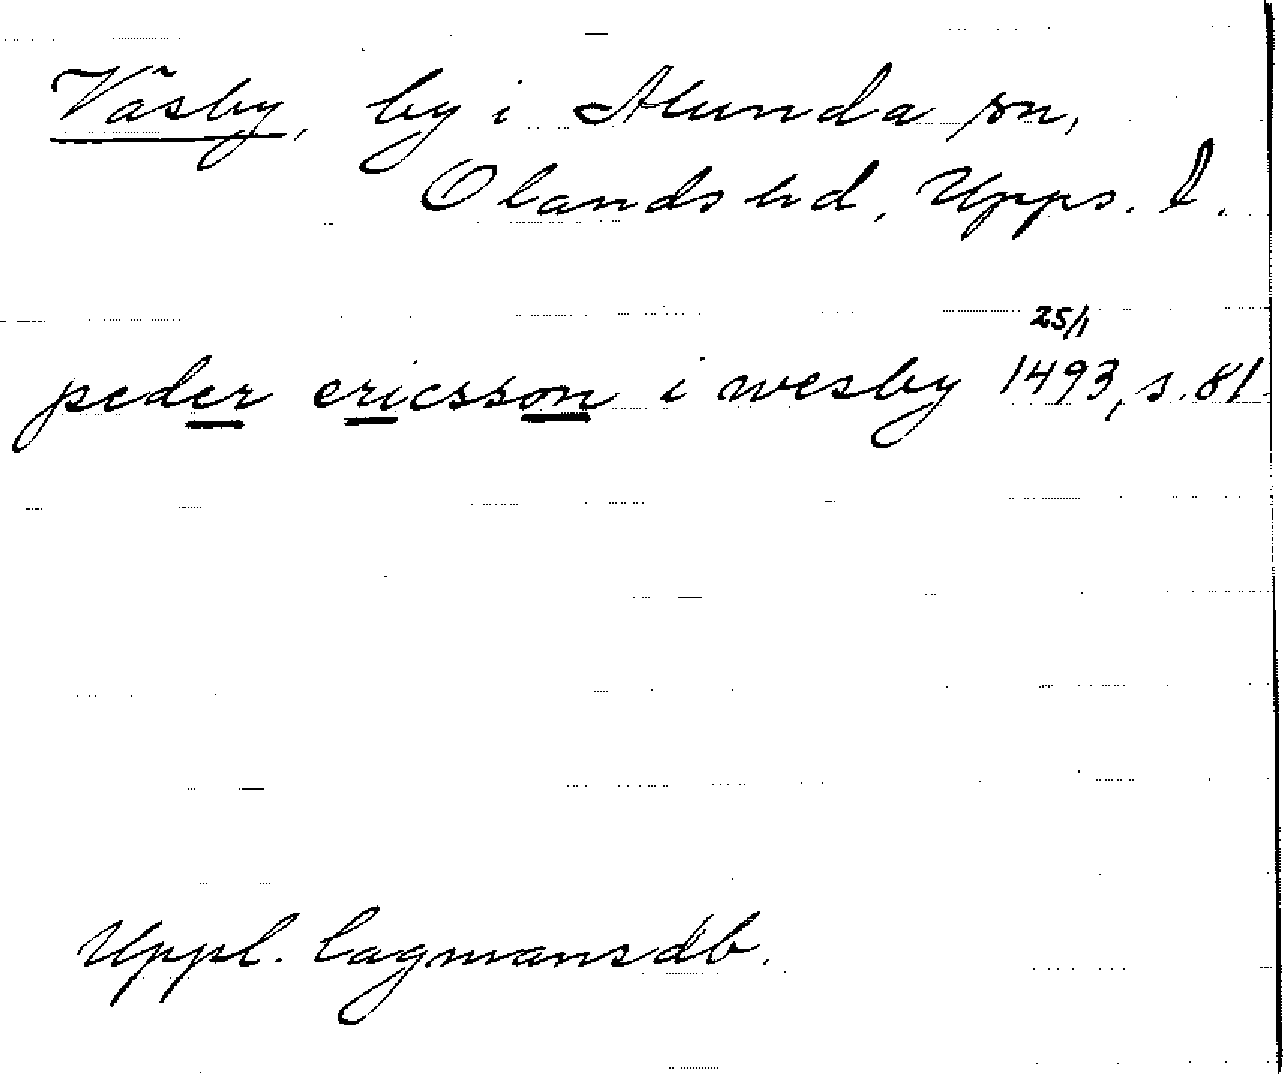 Väsby, by i Alunda sn,
Olands hd, Upps. l.
25/1
peder ericsson i wesby 1493, s. 81.
Uppl. lagmansdb.